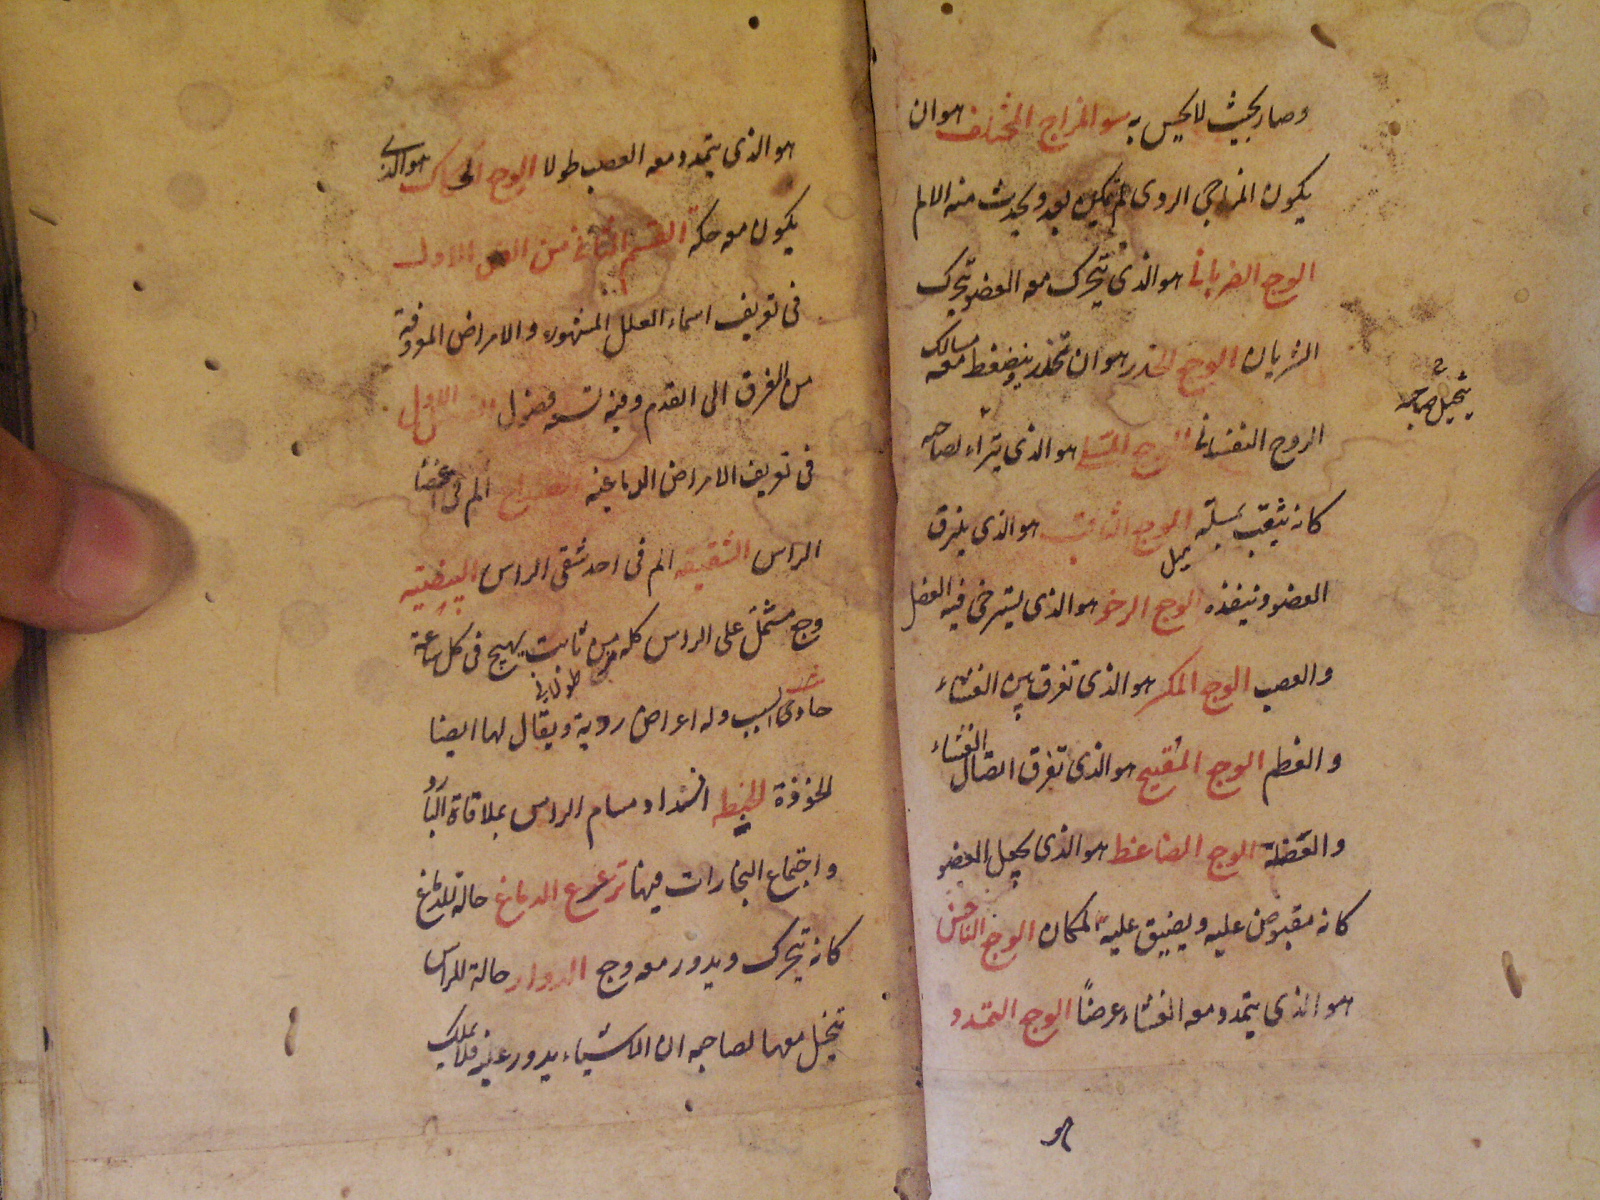 وصار بحيث لا يحس به سو المزاج المختلف هو ان
يكون المزاجي الردى لم يكن بعد ويحدث منه الالم
الوجع الضربانى هو الذى يتحرك معه العضو بتحرك
الشريان الوجع الخدر هو ان تخدر وينضغط معه مسالك
الروح النفسانى الوجع المسلى هو الذى يتراء لصاحبه
يتخيل صاحبه
كانه يثقب بمسلة الوجع الثاقب هو الذى يخرق
العضو وينفذه الوجع الرخو هو الذى يسترخى فيه العضل
والعصب الوجع المكسر هو الذى تفرق بين الغشاء
والعظم الوجع المفسخ هو الذى تفرق اتصال الغشاء
والعضلة الوجع الضاغط هو الذى يجعل العضو
كانه مقبوض عليه ويضيق عليه المكان الوجع الناخس
هو الذى يتمدد معه الغشاء عرضًا الوجع التمدد
هو
هو الذى يتمدد معه العصب طولا الوجع الحكاك هو الذى
يكون معه حكه القسم الثانى من الفن الاول
فى تعريف اسماء العلل المشهوره والامراض المعروفة
من الفرق الى القدم وفيه تسعه فصول الفصل الاول
فى تعريف الامراض الدماغيه الصداع الم فى اعضا
الراس الشقيقه الم فى احد شقى الراس البيضية
وجع مشتمل على الراس كله مزمن ثابت يهيج فى كل ساعة
حادى السبب وله اعراض ردية ويقال لها ايضا
الخوذة الخبطه انسداد مسام الراس بملاقاة البارد
واجتماع البخارات فيها ترعرع الدماغ حالة للدماغ
كانه يتحرك ويدور معه وجع الدوار حالة للراس
تتخيل معها لصاحبه ان الاشياء يدور عليه فلا يملك